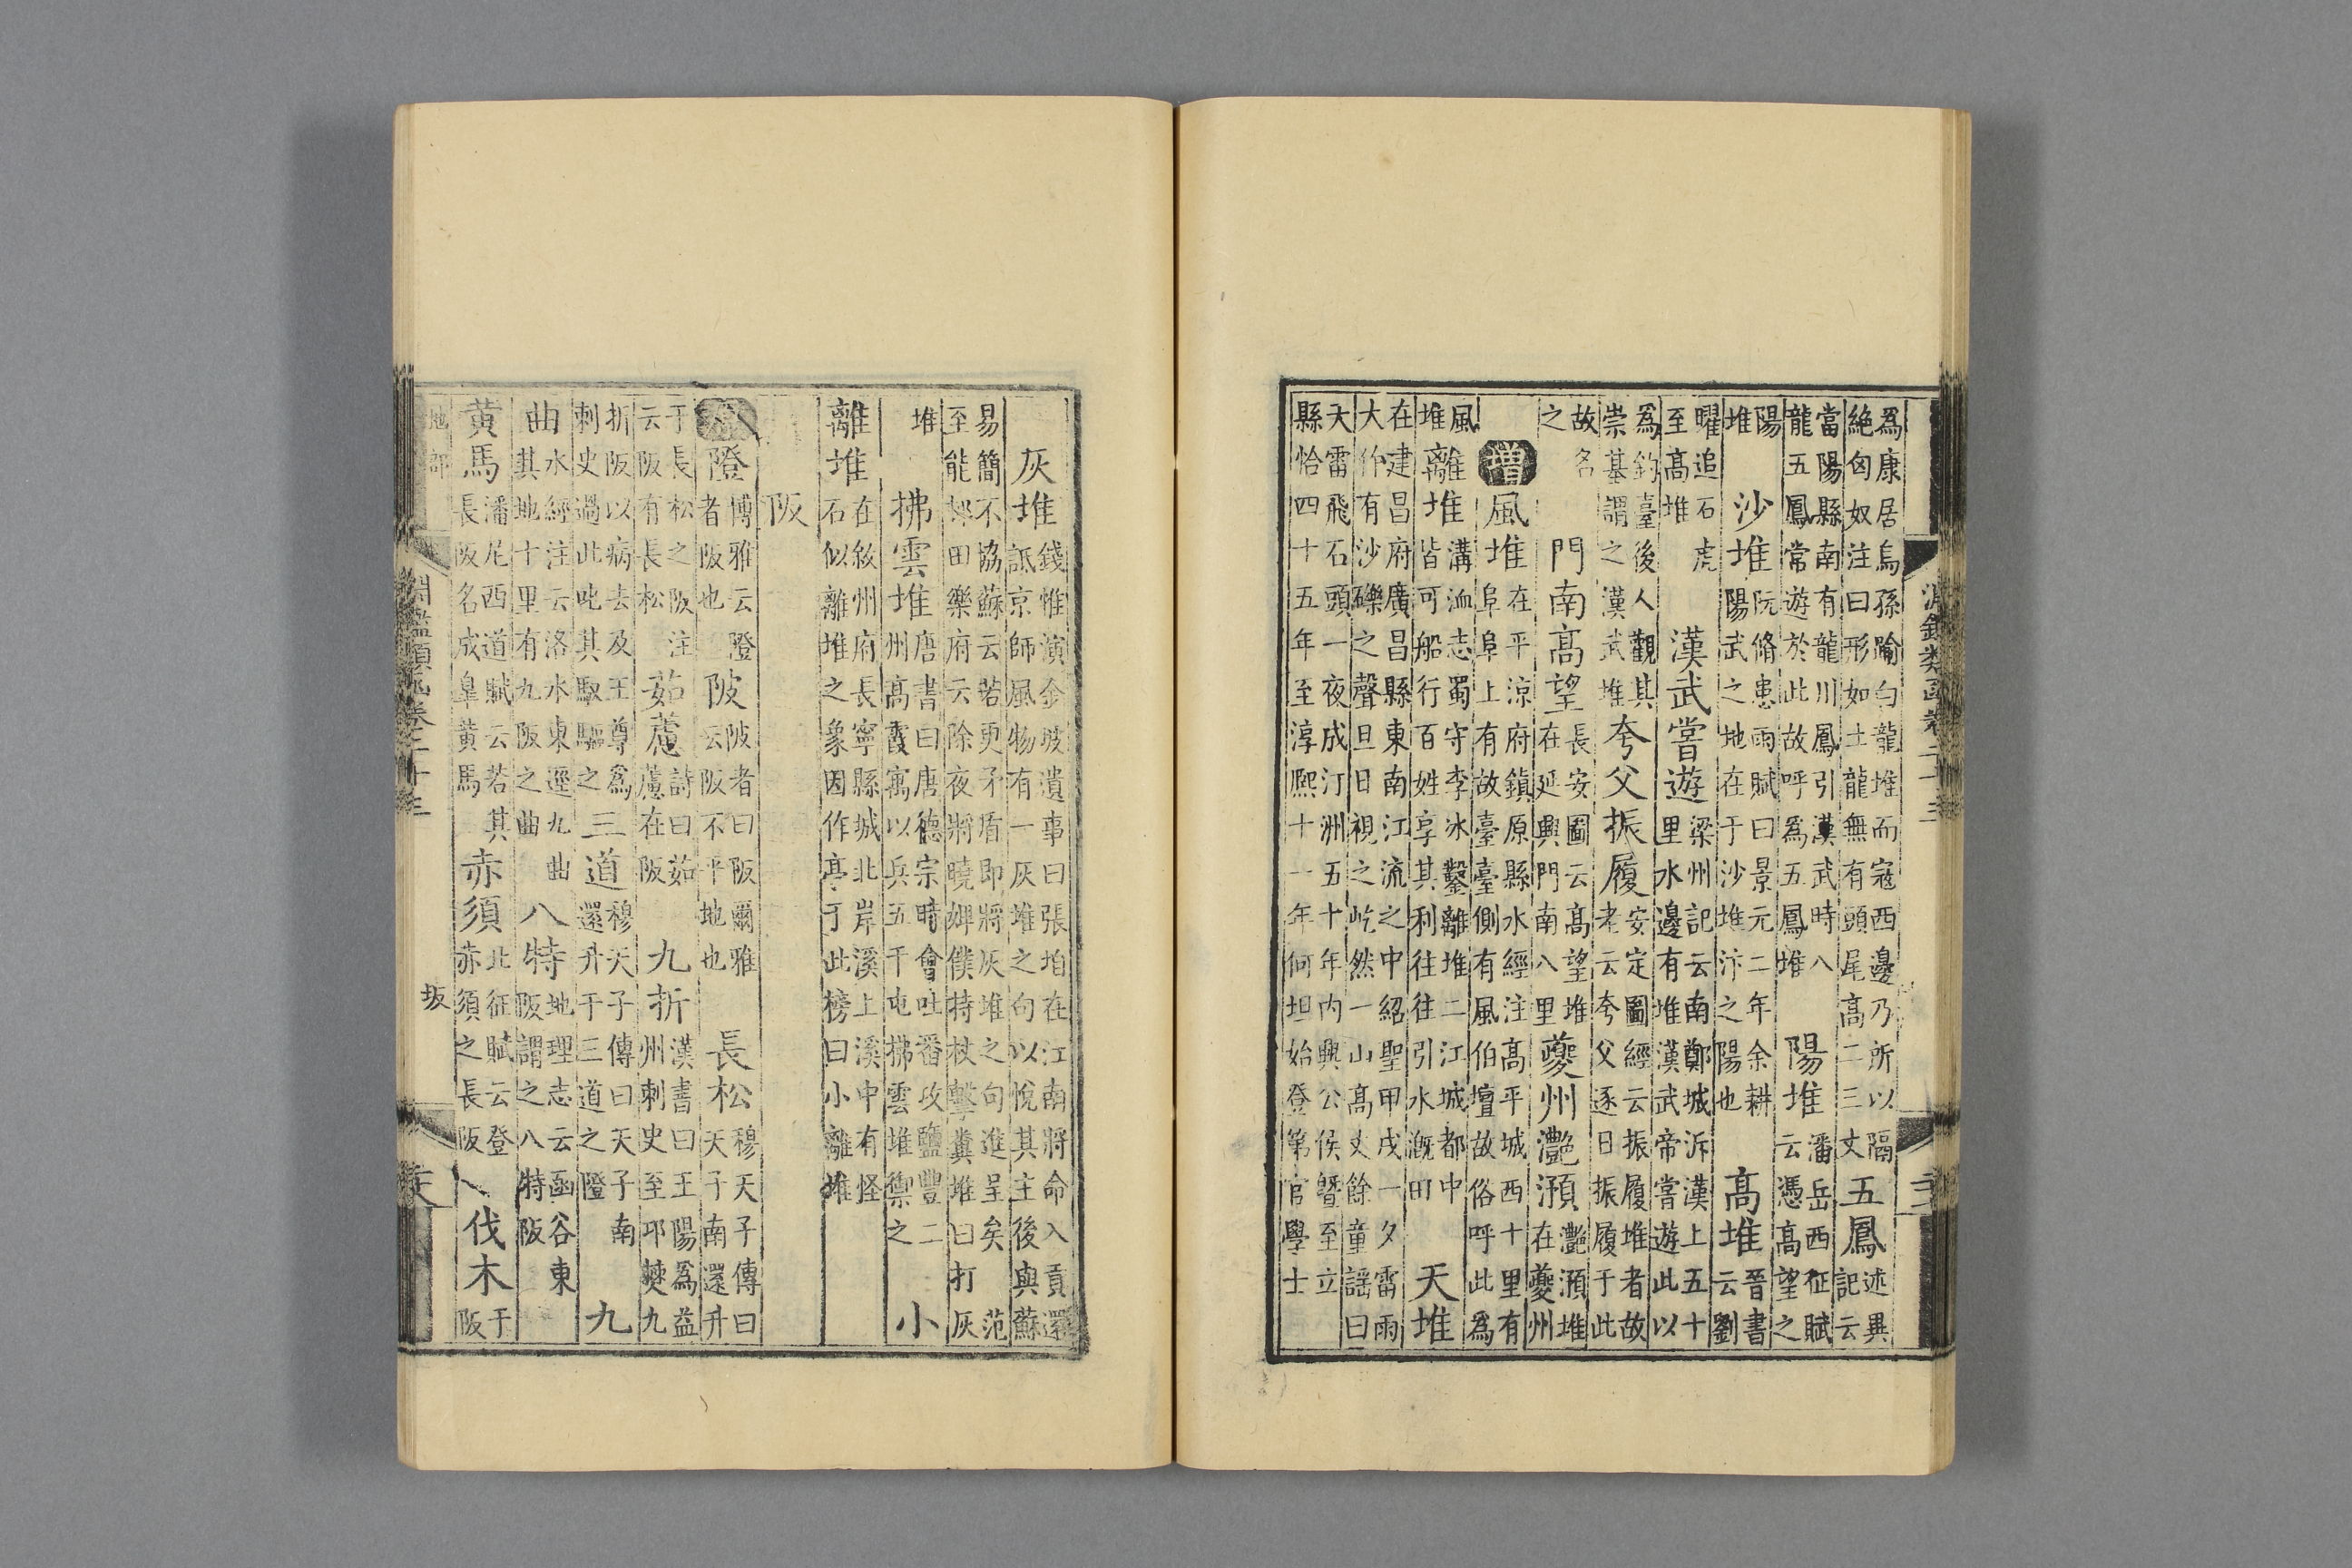 爲康居烏孫踰白龍堆而寇西邊乃所以隔
絶匈奴注曰形如土龍無有頭尾高二三丈
五鳳
述異
記云
當陽縣南有龍川鳳引漢武時八
龍五鳳常遊於此故呼爲五鳳堆
陽堆
潘岳西征賦
云憑高望之
陽
堆
沙堆
阮脩患雨賦曰景元二年余耕
陽武之地在于沙堆汴之陽也
高堆
晉書
云劉
曜追石虎
至高堆
漢武嘗遊
梁州記云南鄭城泝漢上五十
里水邊有堆漢武帝嘗遊此以
爲釣臺後人觀其
崇基謂之漢武堆
夸父振履
安定圖經云振履堆者故
老云夸父逐日振履于此
故名
之
門南高望
長安圖云高望堆
在延興門南八里
夔州灩澦
灩澦堆
在夔州
增
風堆
在平涼府鎮原縣水經注高平城西十里有
阜阜上有故臺臺側有風伯壇故俗呼此爲
風
堆
離堆
溝洫志蜀守李冰鑿離堆二江城都中
皆可船行百姓享其利往往引水漑田
天堆
在建昌府廣昌縣東南江流之中紹聖甲戌一夕雷雨
大作有沙礫之聲旦日視之屹然一山高丈餘童謡曰
天雷飛石頭一夜成汀洲五十年内興公侯曁至立
縣恰四十五年至淳熙十一年何坦始登第官學士
灰堆
錢惟演金坡遺事曰張洎在江南將命入貢還
詆京師風物有一灰堆之句以悅其主後與蘇
易簡不協蘇云若更矛盾即將灰堆之句進呈矣范
至能邺田樂府云除夜將曉婢僕持杖擊糞堆曰打灰
堆
拂雲堆
唐書曰唐德宗時會吐番攻鹽豐二
州高霞寓以兵五千屯拂雲堆禦之
小
離堆
在敘州府長寧縣城北岸溪上溪中有怪
石似離堆之象因作亭于此榜曰小離堆
阪
隥
博雅云隥
者陂也
陂
陂者曰阪爾雅
云阪不平地也
長松
穆天子傳曰
天子南還升
于長松之阪注
云阪有長松
茹藘
詩曰茹
藘在阪
九折
漢書曰王陽爲益
州刺史至邛僰九
折阪以病去及王尊爲
刺史過此叱其馭驅之
三道
穆天子傳曰天子南
還升于三道之隥
九
曲
水經注云洛水東逕九曲
其地十里有九阪之曲
八特
地理志云函谷東
阪謂之八特阪
黃馬
潘尼西道賦云若其
長阪名成皐黃馬
赤須
北征賦云登
赤須之長阪
伐木
于
阪
地部
淵鑑類函卷二十三
坂
淵鑑類函卷二十三